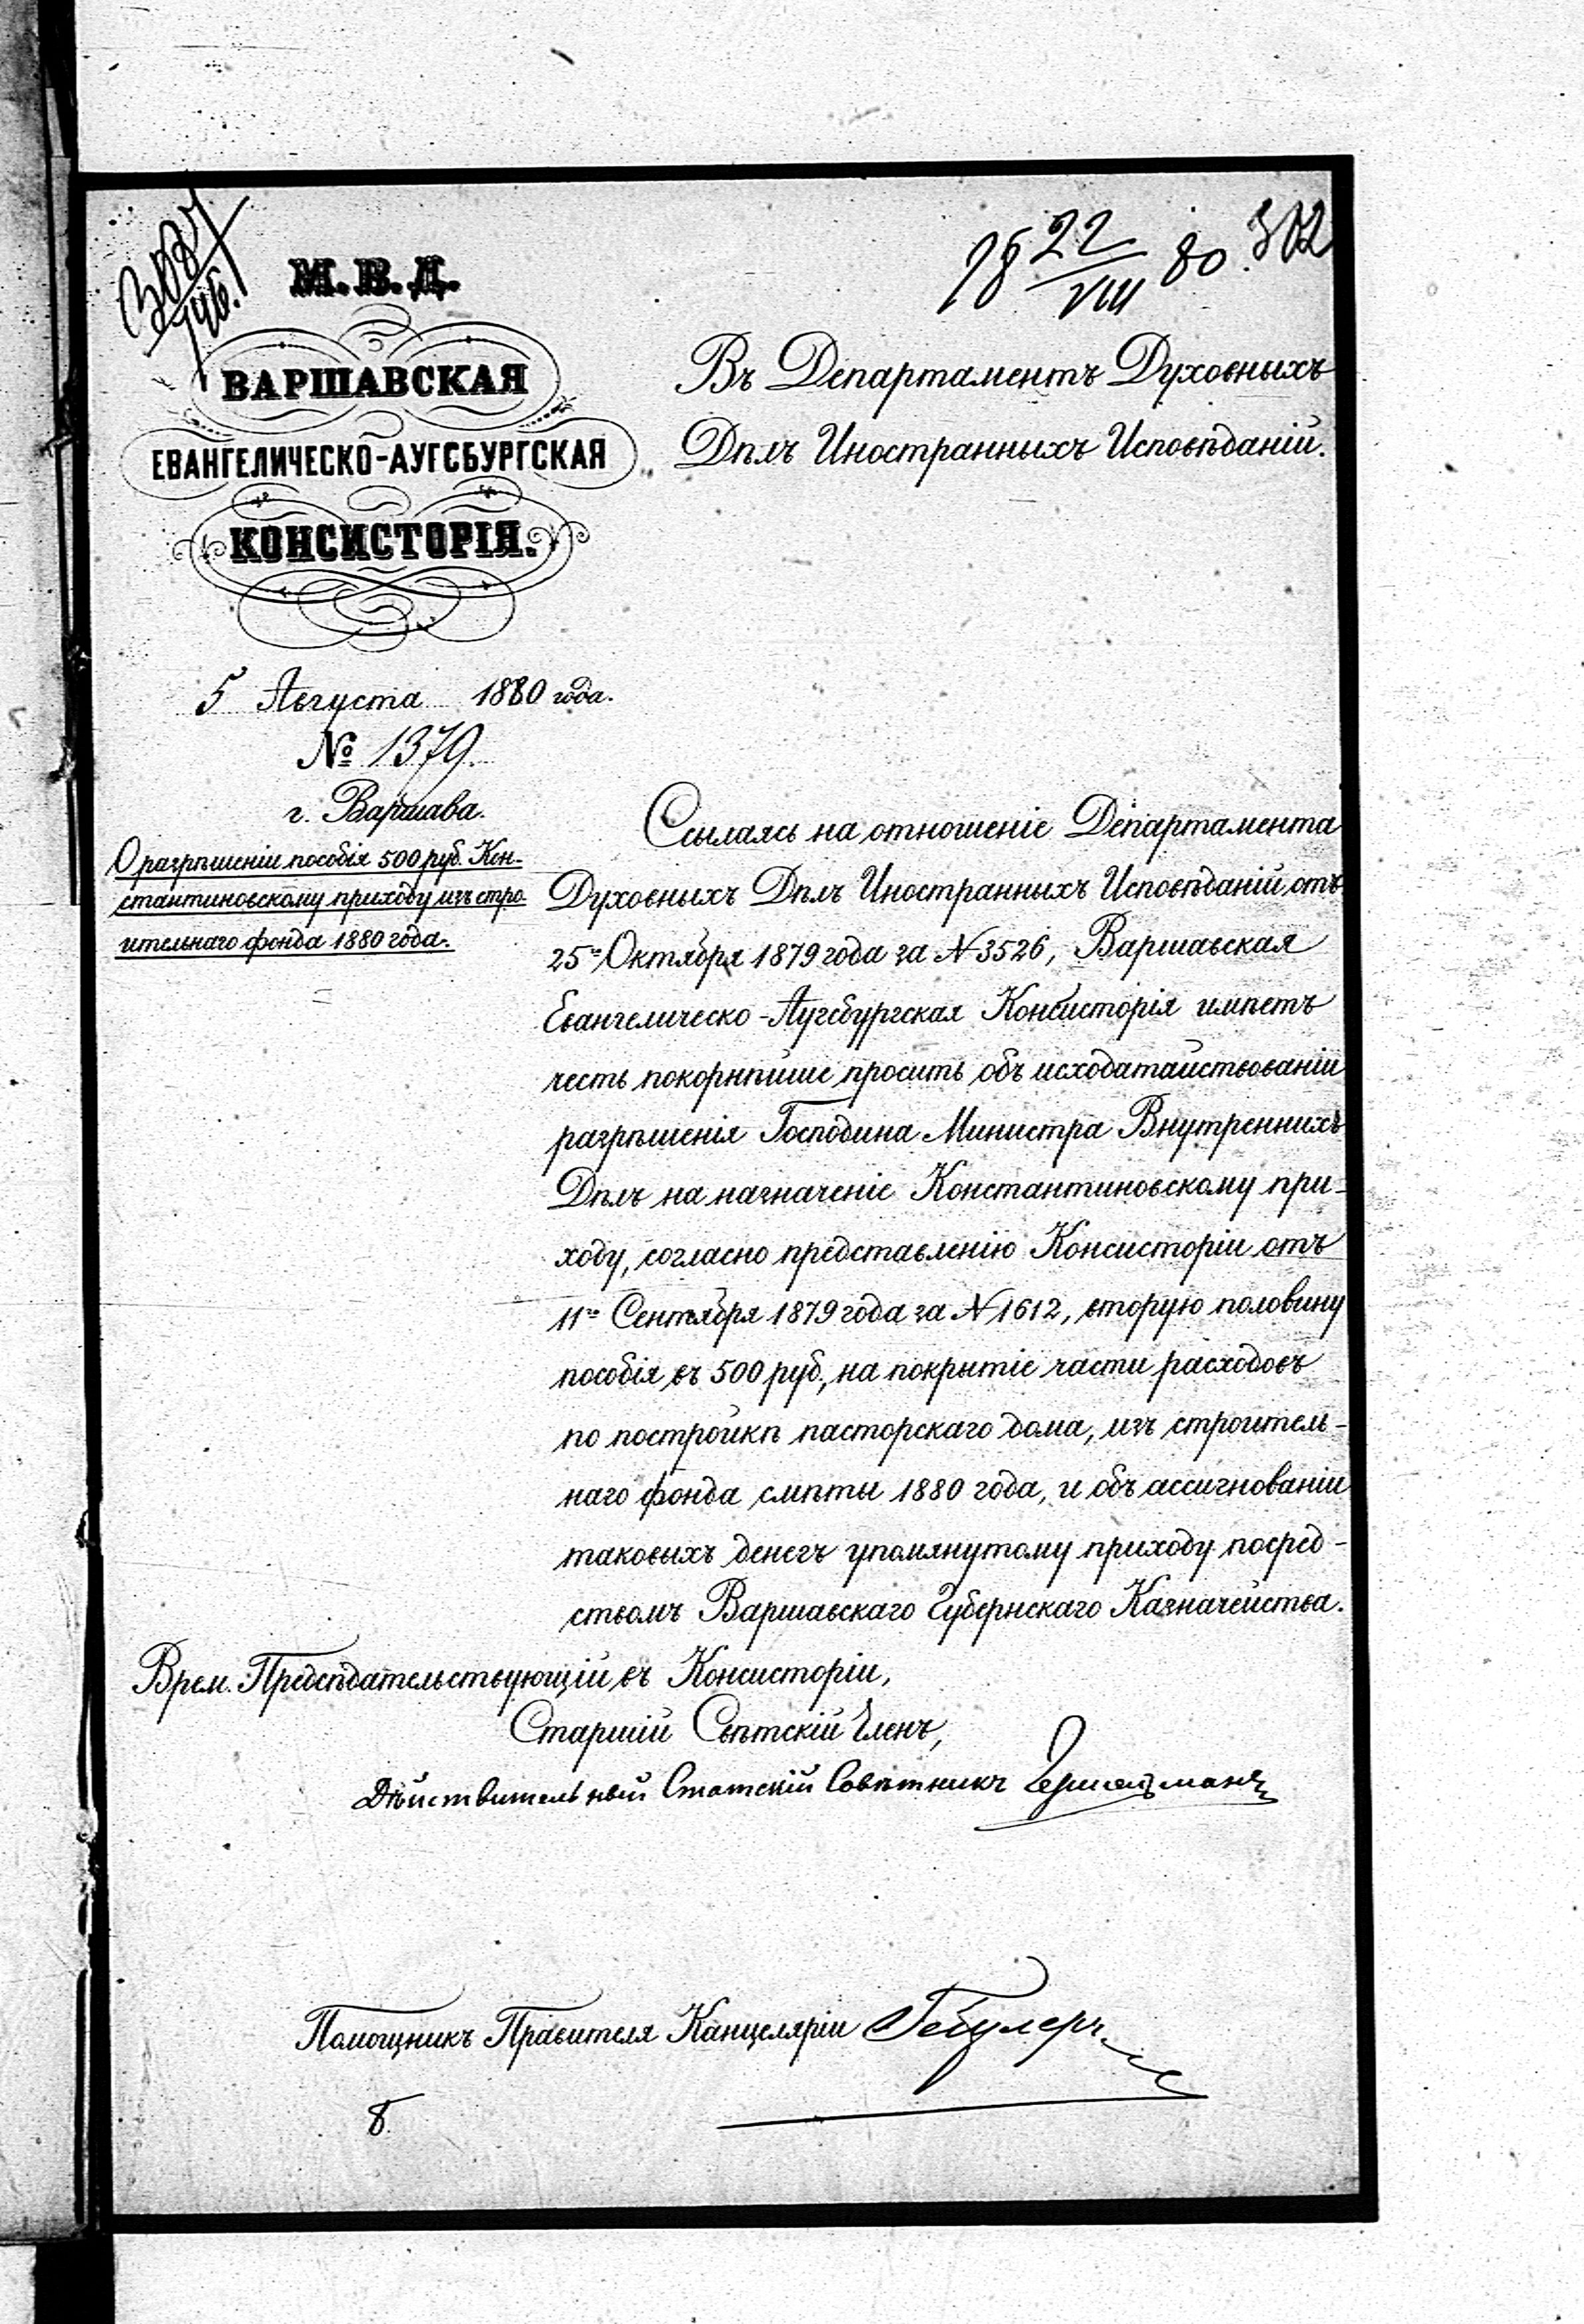 18 22/VIII 80. 302
М. В. Д.
ВАРШАВСКАЯ
ЕВАНГЕЛИЧЕСКО-АУГСБУРГСКАЯ
КОНСИСТОРІЯ.
5 Августа 1880 года.
№ 1379.
г. Варшава.
О разрѣшеніи пособія 500 руб. Кон-
стантиновскому приходу изъ стро-
ительнаго фонда 1880 года.
Въ Департаментъ Духовныхъ
Дѣлъ Иностранныхъ Исповѣданій.
Ссылаясь на отношеніе Департамента
Духовныхъ Дѣлъ Иностранныхъ Исповѣданій, отъ
25го Октября 1879 года за № 3526, Варшавская
Евангелическо-Аугсбургская Консисторія имѣетъ
честь покорнѣйше просить объ исходатайствованіи
разрѣшенія Господина Министра Внутреннихъ
Дѣлъ на назначеніе Константиновскому при-
ходу, согласно представленію Консисторіи отъ
11го Сентября 1879 года за № 1612, вторую половину
пособія въ 500 руб., на покрытіе части расходовъ
по постройкѣ пасторскаго дома, изъ строитель-
наго фонда смѣты 1880 года, и объ ассигнованіи
таковыхъ денегъ упомянутому приходу посред-
ствомъ Варшавскаго Губернскаго Казначейства.
Врем. Предсѣдательствующій въ Консисторіи,
Старшій Свѣтскій Членъ,
Дѣйствительный Статскій Совѣтникъ
Помощникъ Правителя Канцеляріи
8.